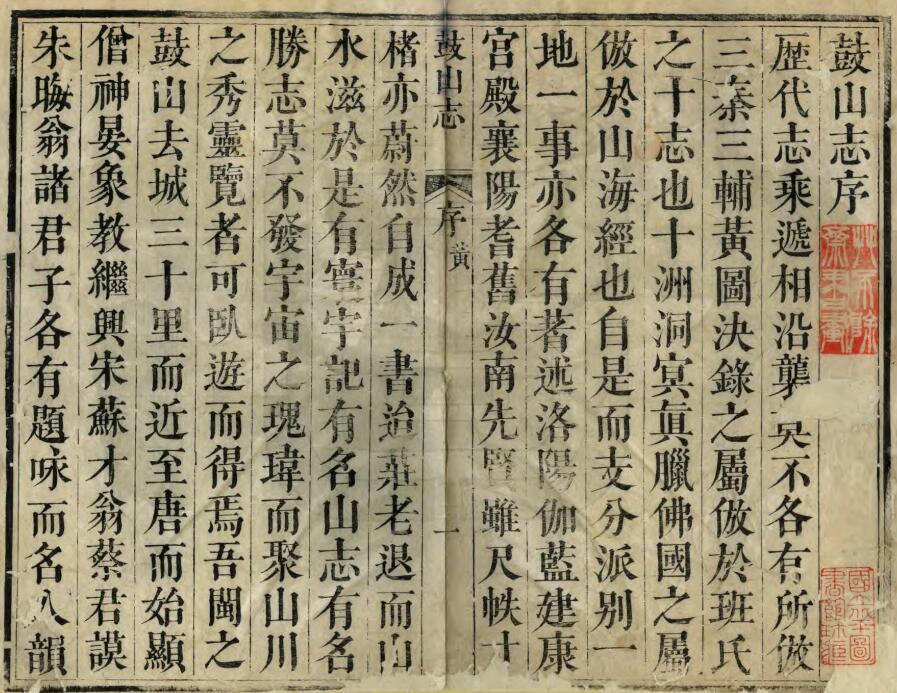 鼓山志序
厯代志乘遞相沿襲莫不各有所倣
三秦三輔黃圖決錄之屬倣於班氏
之十志也十洲洞冥眞臘佛國之屬
倣於山海經也自是而支分派別一
地一事亦各有著述洛陽伽藍建康
宮殿襄陽耆舊汝南先賢雖尺帙寸
鼓山志 序 黃 一
楮亦蔚然自成一書迨莊老退而山
水滋於是有寰宇記有名山志有名
勝志莫不發宇宙之瑰瑋而聚山川
之秀靈覽者可臥遊而得焉吾閩之
鼓山去城三十里而近至唐而始顯
僧神晏象教繼興宋蘇才翁蔡君謨
朱晦翁諸君子各有題咏而名人韻